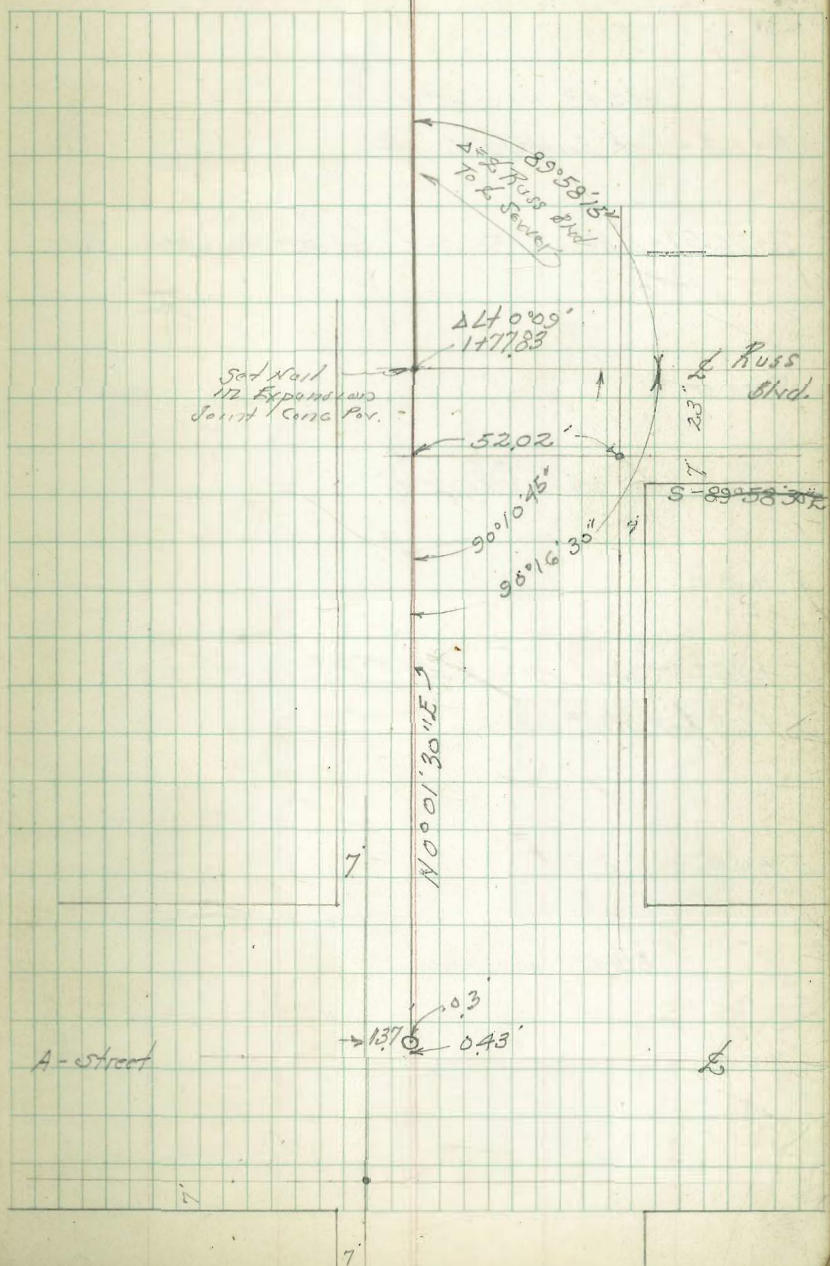 89°58'15"
∆ ℄ Russ Blvd
To ℄ Sewer
∆ Lt 0°09'
1+77.83
Set Nail
in Expansion
Joint Conc Pav.
℄ Russ
Blvd.
23'
52.02'
7'
S-89°58'30"E
90°10'45"
90°16'30"
N0°01'30"E
7'
0.3'
13.7
0.43'
A-Street
℄
7'
7'